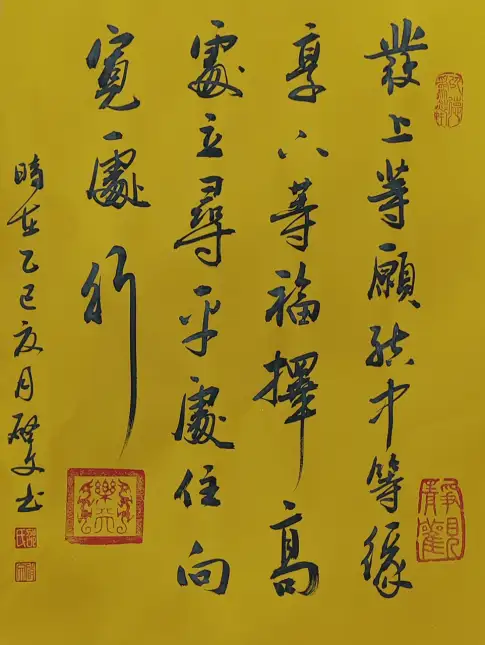 發上等願結中等緣
享下等福擇高
處立尋平處住向
寬處行
時在乙巳夏月
書